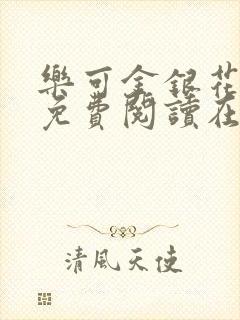 樂可金銀花
免費閱讀在
清風天使